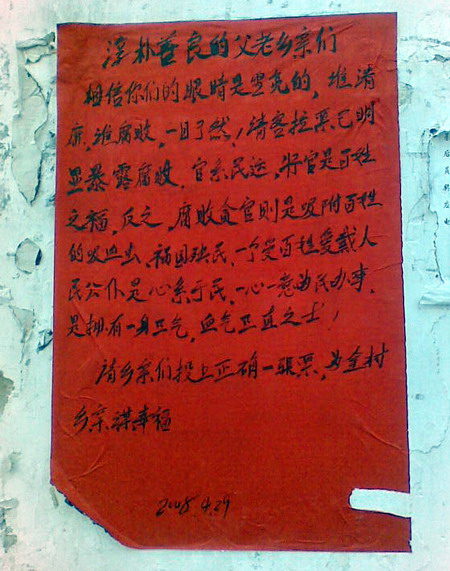 淳朴善良的父老乡亲们
相信你们的眼睛是雪亮的,谁清
廉,谁腐败,一目了然!请客拉票已明
显暴露腐败。官系民运,好官是百姓
之福,反之,腐败贪官则是吸附百姓
的吸血虫、祸国殃民,一个受百姓爱戴人
民公仆是心系于民,一心一意为民办事,
是拥有一身正气,血气正直之士!
请乡亲们投上正确一张票,为全村
乡亲谋幸福
2008.4.29